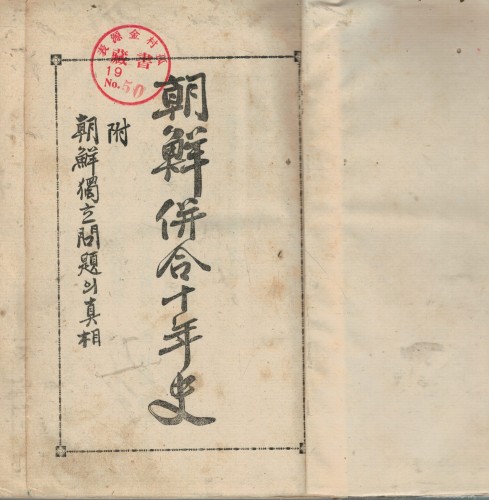 朝鮮併合十年史
附
朝鮮獨立問題의真相
藏書
19
No. 50